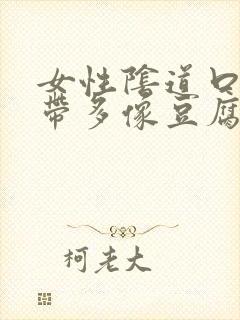 女性陰道口
帶多像豆腐
柯老大